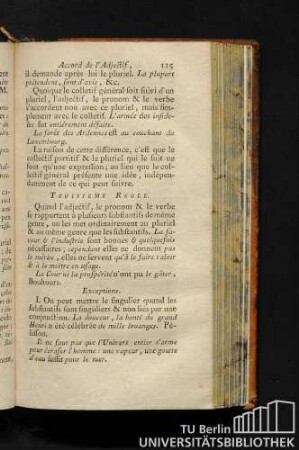 Accord de l'Adjectif, 115
il demande après lui le pluriel. La plupart
prétendent, sont d'avis, &c.
Quoique le collectif général soit suivi d'un
pluriel, l'adjectif, le pronom & le verbe
s'accordent non avec ce pluriel, mais sim-
plement avec le collectif. L'armée des infide-
les fut entiérement défaite.
La forêt des Ardennes est au couchant du
Luxembourg.
La raison de cette différence, c'est que le
collectif partitif & le pluriel qui le suit ne
font qu'une expression; au lieu que le col-
lectif général présente une idée, indépen-
damment de ce qui peut suivre.
TROISIEME REGLE.
Quand l'adjectif, le pronom & le verbe
se rapportent à plusieurs substantifs de même
genre, on les met ordinairement au pluriel
& au même genre que les substantifs. La fa-
veur & l'industrie sont bonnes & quelquefois
nécessaires; cependant elles ne donnent pas
le mérite, elles ne servent qu'à le faire valoir
& à le mettre en usage.
La Cour ni la prospérité n'ont pu le gâter,
Bouhours.
Exceptions.
I. On peut mettre le singulier quand les
substantifs sont singuliers & non liés par une
conjonction. La douceur, la bonté du grand
Henri a été célébrée de mille louanges. Pé-
lisson.
Il ne faut pas que l'Univers entier s'arme
pour écraser l'homme: une vapeur, une goute
d'eau suffit pour le tuer.
TU Berlin
UNIVERSITÄTSBIBLIOTHEK